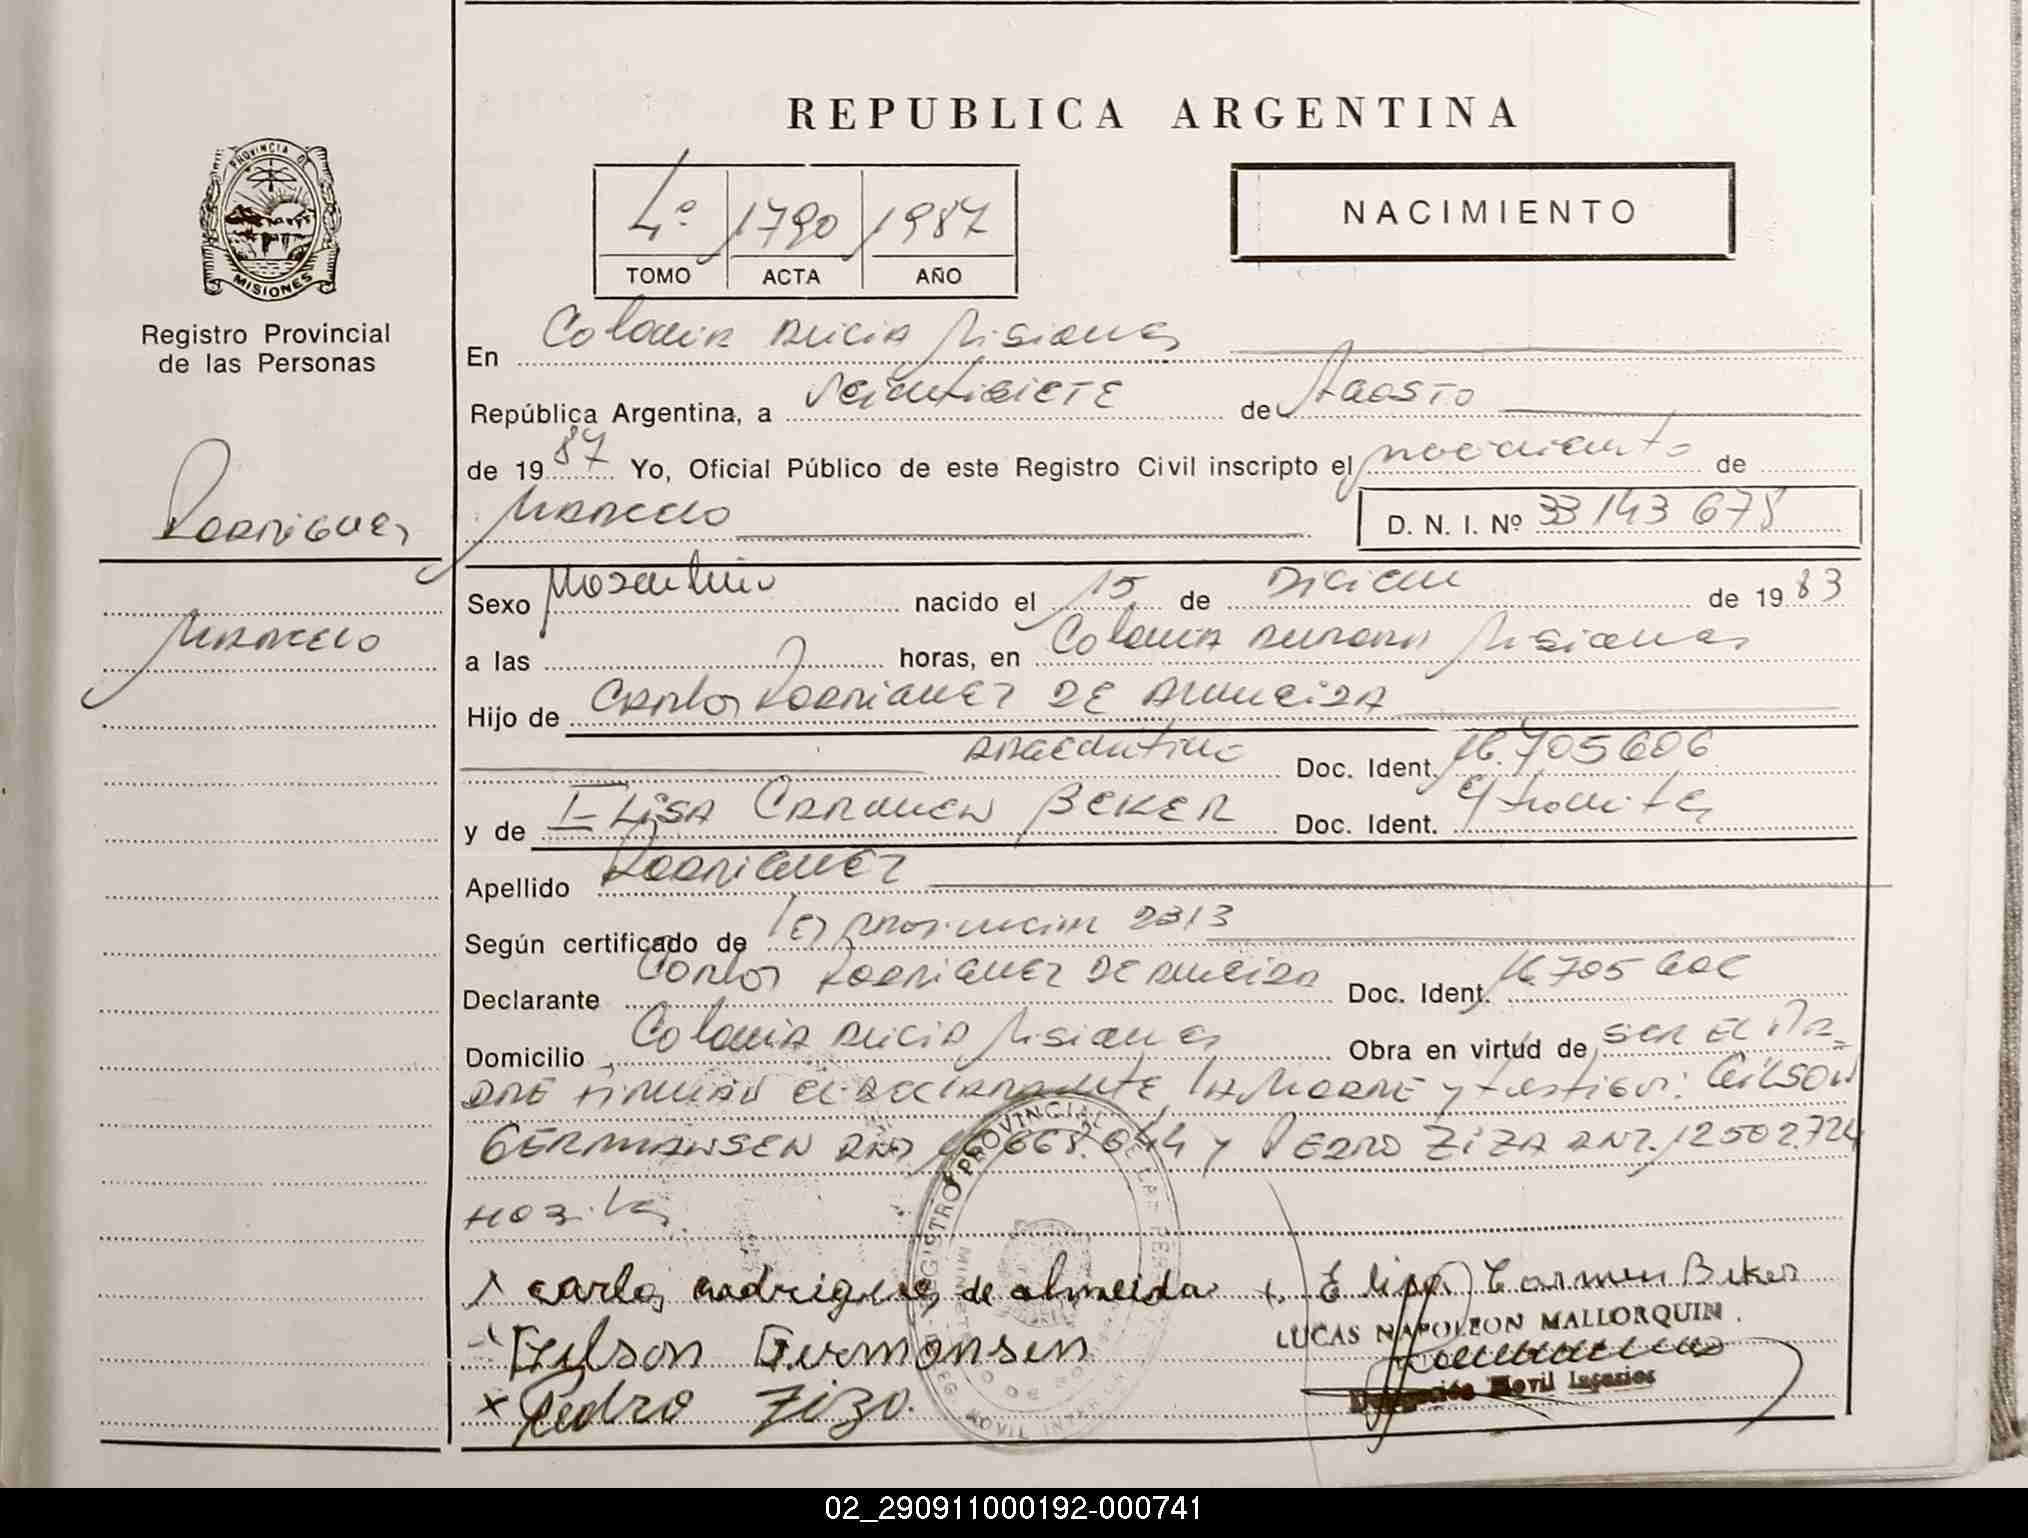 REPUBLICA ARGENTINA
PROVINCIA DE
MISIONES
Registro Provincial
de las Personas
4º 1790 1987
TOMO ACTA AÑO
NACIMIENTO
En Colonia Alicia Misiones
República Argentina, a Veintisiete de Agosto
de 1987 Yo, Oficial Público de este Registro Civil inscripto el nacimiento de
Marcelo D. N. I. Nº 33143678
Rodriguez
Marcelo
Sexo Masculino nacido el 15 de Diciem de 1983
a las horas, en Colonia Aurora Misiones
Hijo de Carlos Rodriguez DE Almeida
Argentino Doc. Ident. 16.705606
y de Elisa Carmen Beker Doc. Ident. e/tramites
Apellido Rodriguez
Según certificado de Ley Provincial 2313
Declarante Carlos Rodriguez De Almeida Doc. Ident. 16.705606
Domicilio Colonia Alicia Misiones Obra en virtud de ser el Pa=
dre Firman el declarante, la Madre y testigos: Gilson
Germansen DNI 668.644 y Pedro Ziza DNI. 12502.724
REGISTRO PROVINCIAL DE LAS PE
x carlos rodrigues de almeida x Elisa Carmen Beker
Gilson Germansen
LUCAS NAPOLEON MALLORQUIN
Delegación Movil
x Pedro Ziza.
02_290911000192-000741